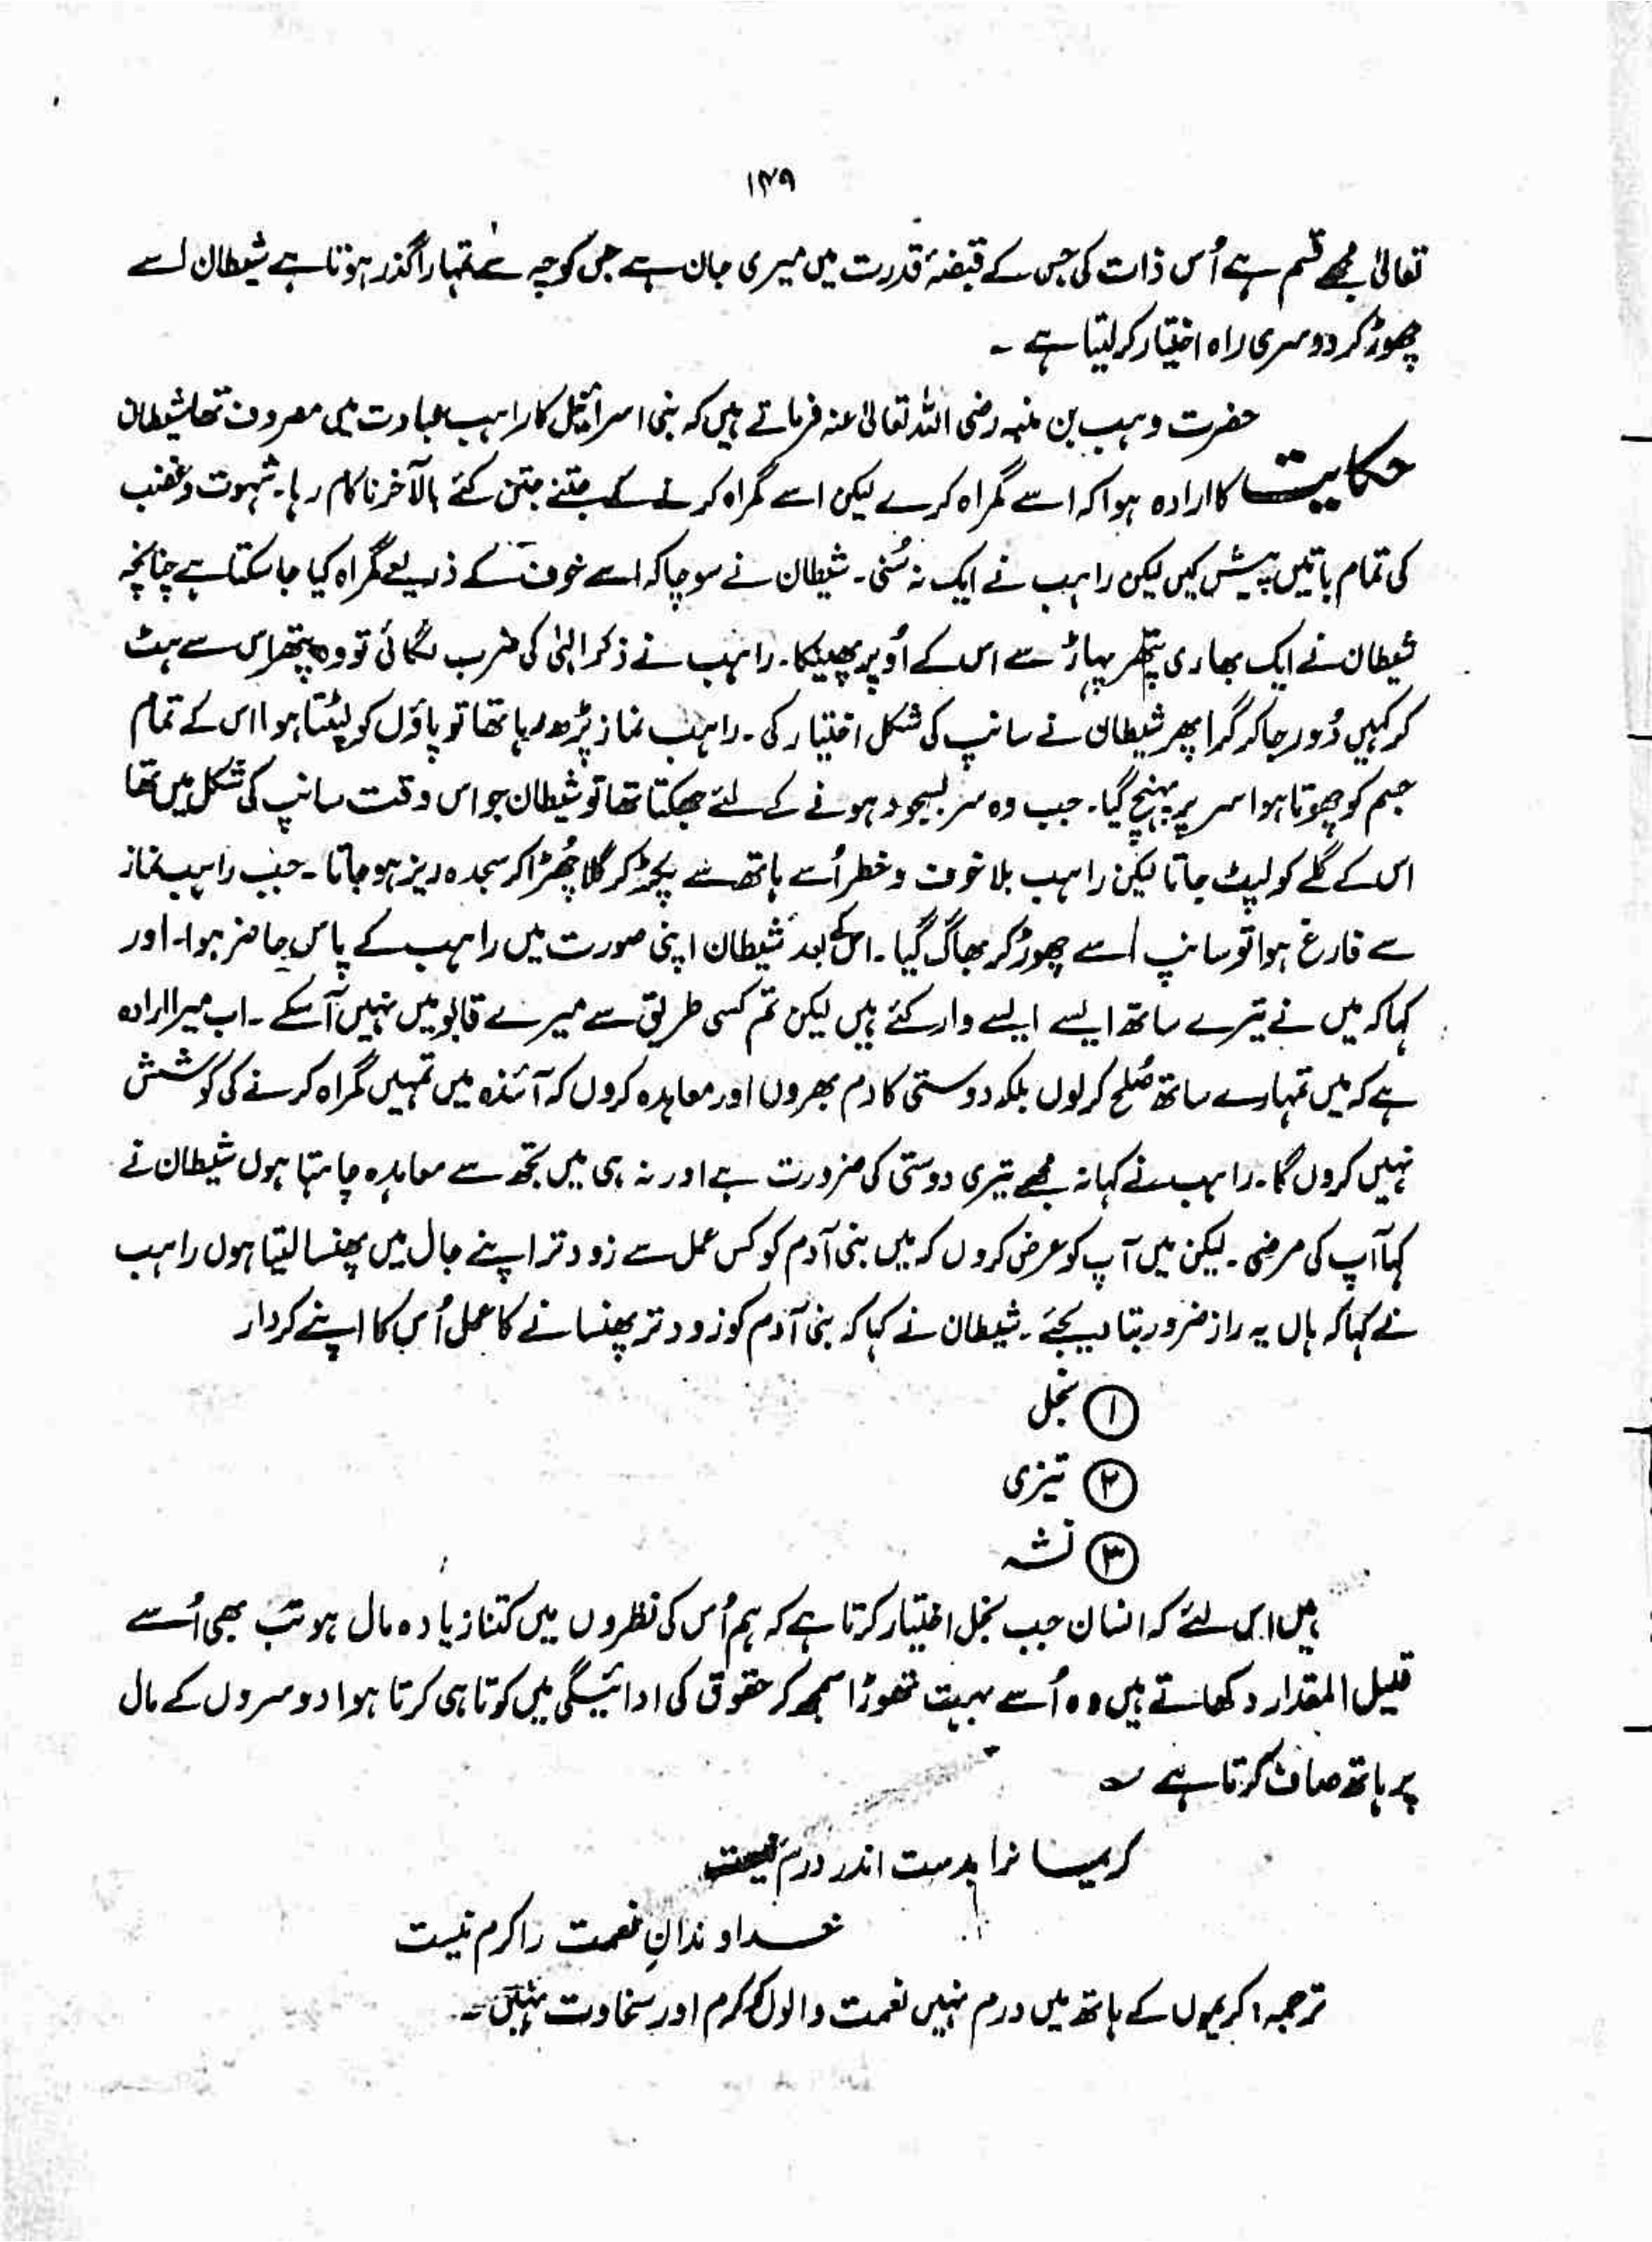 ۱۴۹
تعالیٰ مجھے قسم ہے اُس ذات کی جس کے قبضۂ قدرت میں میری جان ہے جس کوچہ سے تمہارا گذر ہوتا ہے شیطان اسے
چھوڑ کر دوسری راہ اختیار کر لیتا ہے ۔
حضرت وہب بن منبہ رضی اللہ تعالیٰ عنہ فرماتے ہیں کہ بنی اسرائیل کا راہب عبادت میں مصروف تھا شیطان
حکایت کا ارادہ ہوا کہ اسے گمراہ کرے لیکن اسے گمراہ کرنے کے جتنے جتن کئے بالآخر ناکام رہا۔ شہوت و غضب
کی تمام باتیں پیش کیں لیکن راہب نے ایک نہ سُنی ۔ شیطان نے سوچا کہ اسے خوف کے ذریعے گمراہ کیا جا سکتا ہے چنانچہ
شیطان نے ایک بھاری پتھر پہاڑ سے اس کے اُوپر پھینکا ۔ راہب نے ذکر الہٰی کی ضرب لگائی تو وہ پتھر اس سے ہٹ
کر کہیں دُور جا کر گرا پھر شیطان نے سانپ کی شکل اختیار کی ۔ راہب نماز پڑھ رہا تھا تو پاؤں کو لپٹتا ہوا اس کے تمام
جسم کو چھوتا ہوا سر پر پہنچ گیا ۔ جب وہ سر بسجود ہونے کے لئے جھکتا تھا تو شیطان جو اس وقت سانپ کی شکل میں تھا
اس کے گلے کو لپٹ جاتا لیکن راہب بلا خوف و خطر اُسے ہاتھ سے پکڑ کر گلا چُھڑا کر سجدہ ریز ہو جاتا ۔ جب راہب نماز
سے فارغ ہوا تو سانپ اسے چھوڑ کر بھاگ گیا ۔ اس کے بعد شیطان اپنی صورت میں راہب کے پاس حاضر ہوا ۔ اور
کہا کہ میں نے تیرے ساتھ ایسے ایسے وار کئے ہیں لیکن تم کسی طریق سے میرے قابو میں نہیں آ سکے ۔ اب میرا ارادہ
ہے کہ میں تمہارے ساتھ صُلح کر لوں بلکہ دوستی کا دم بھروں اور معاہدہ کروں کہ آئندہ میں تمہیں گمراہ کرنے کی کوشش
نہیں کروں گا ۔ راہب نے کہا نہ مجھے تیری دوستی کی ضرورت ہے اور نہ ہی میں تجھ سے معاہدہ چاہتا ہوں شیطان نے
کہا آپ کی مرضی ۔ لیکن میں آپ کو عرض کروں کہ میں بنی آدم کو کس عمل سے زودتر اپنے جال میں پھنسا لیتا ہوں راہب
نے کہا کہ ہاں یہ راز ضرور بتا دیجئے ۔ شیطان نے کہا کہ بنی آدم کو زودتر پھنسانے کا عمل اُس کا اپنے کردار
① بخل
② تیزی
③ نشہ
ہیں اس لئے کہ انسان جب بخل اختیار کرتا ہے کہ ہم اُس کی نظروں میں کتنا زیادہ مال ہو تب بھی اُسے
قلیل المقدار دکھاتے ہیں وہ اُسے بہت تھوڑا سمجھ کر حقوق کی ادائیگی میں کوتاہی کرتا ہوا دوسروں کے مال
پر ہاتھ صاف کرتا ہے ؎
کریمانرا بدست اندر درم نیست
خداوندانِ نعمت را کرم نیست
ترجمہ: کریموں کے ہاتھ میں درم نہیں نعمت والوں کو کرم اور سخاوت نہیں ۔